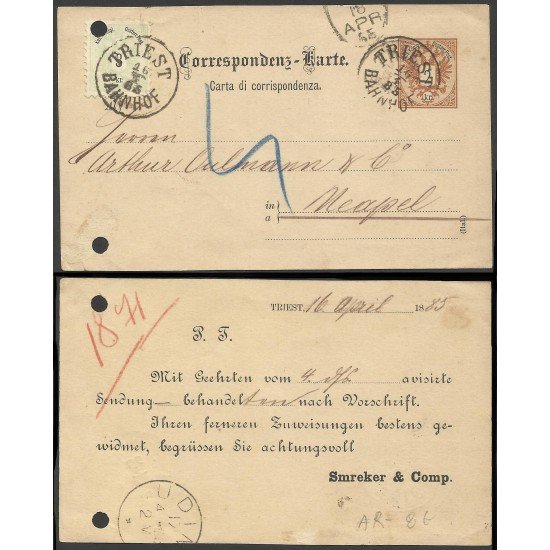 TRIEST
BAHNHOF
APR
85
TRIEST
BAHNHOF
85
Correspondenz-Karte.
Carta di corrispondenza.
Herren
Arthur & Co
in
a
Neapel
(Ital.)
TRIEST, 16 April 1885
P. T.
Mit Geehrten vom 4. dß. avisirte
Sendung — behandelten nach Vorschrift.
Ihren ferneren Zuweisungen bestens ge-
widmet, begrüssen Sie achtungsvoll
Smreker & Comp.
UDIN
AR- 86